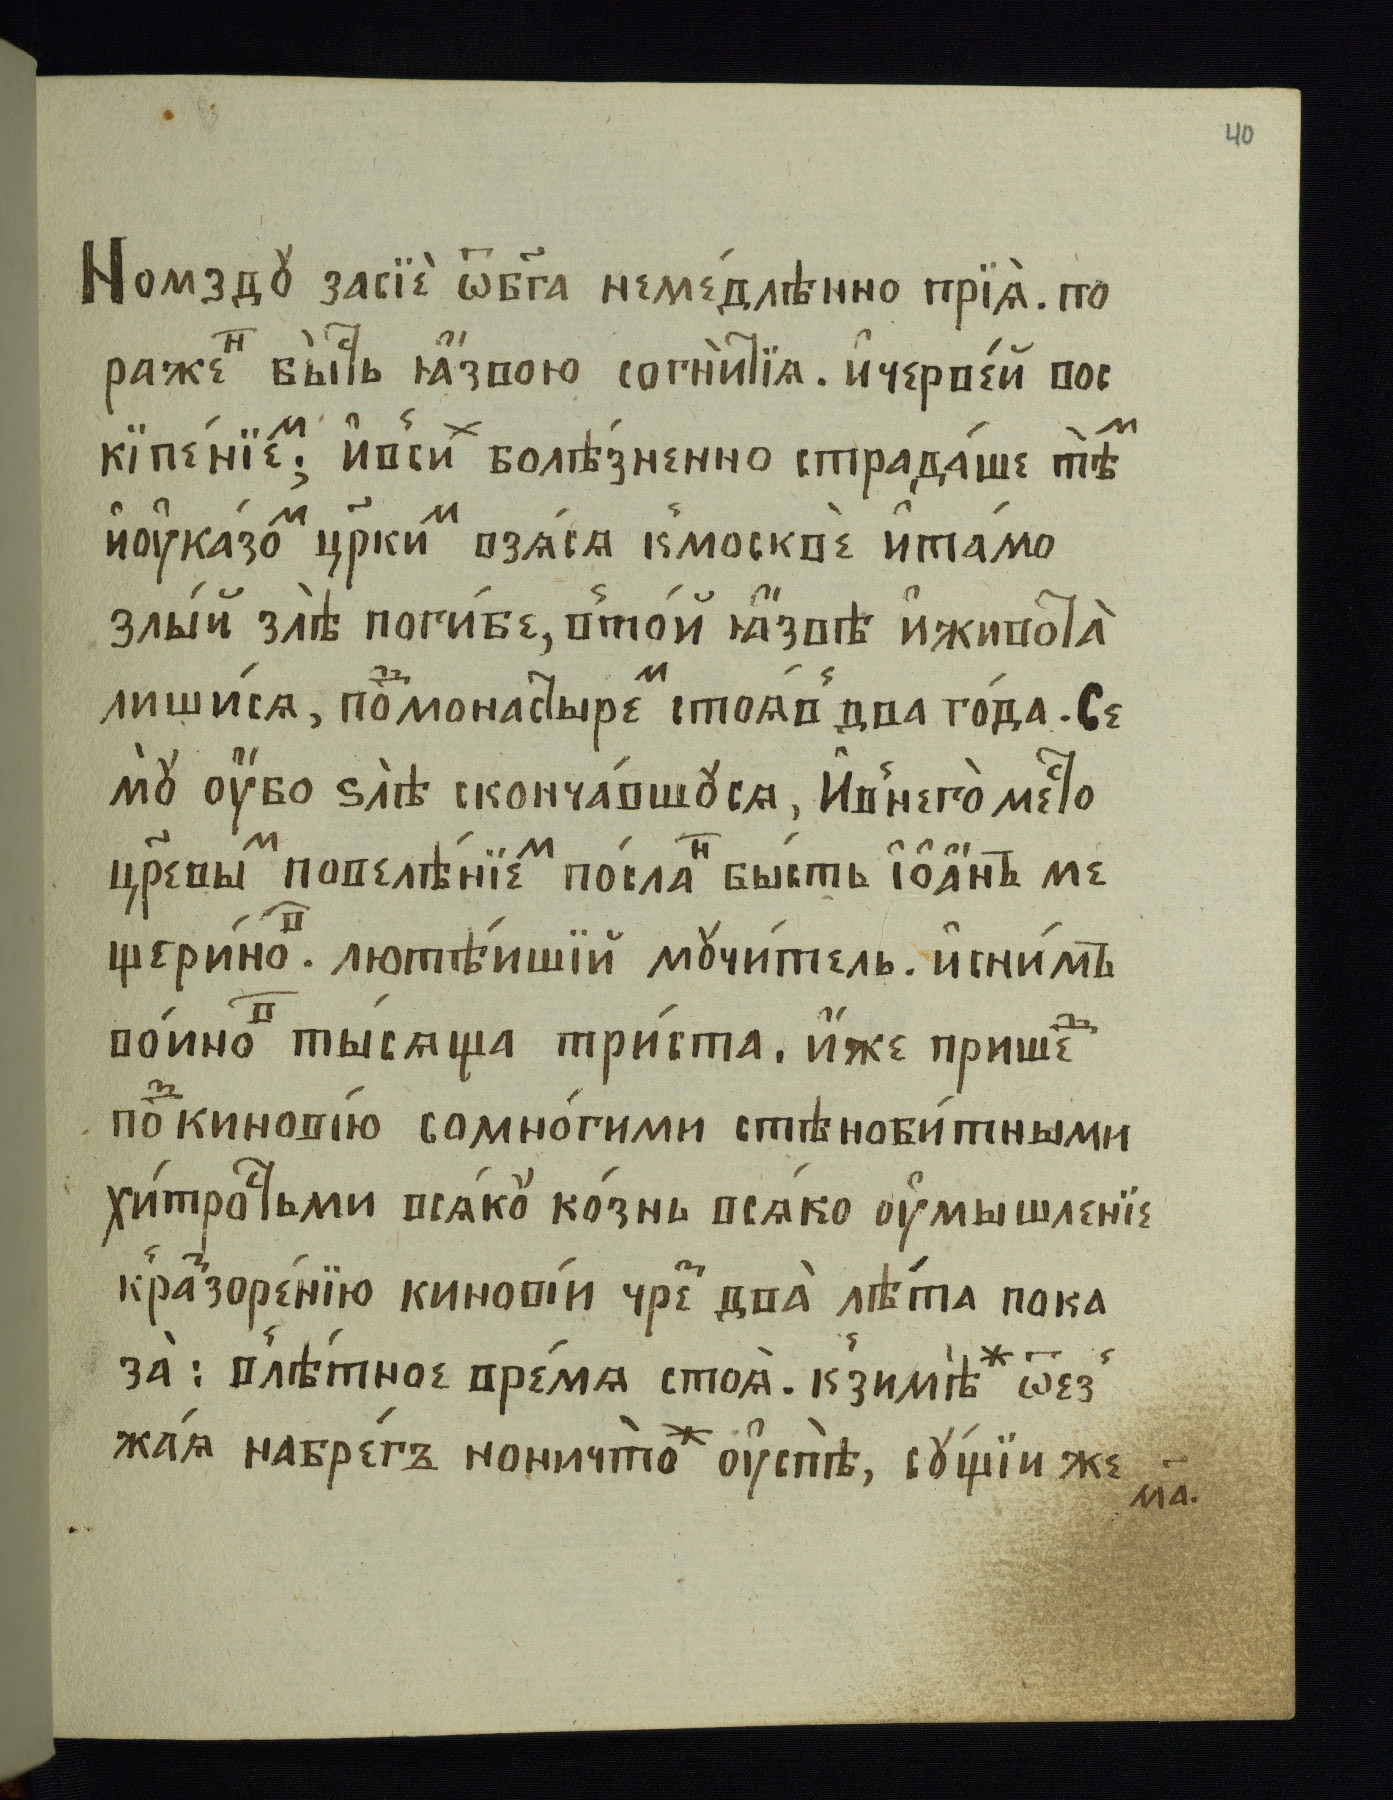 40
Номздꙋ засїѐ ѿбг҃а неме́длѣнно прїѧ̀. по
раже ⷩ҇ бы̀ⷭ҇ть ꙗ҆́звою согнѝтїѧ. и҆черве́й вос
кїпе́нїе́ⷨ; и҆в̾сиⷯ болѣ́зненно страда́ше тѣ̀ⷨ
и҆оу҆ка́зоⷨ цр҃киⷨ взѧ́сѧ к̾москвѐ и҆та́мо
злы́й злѣ̀ поги́бе, в̾то́й ꙗ҆́звѣ и҆живота̀
лиши́сѧ, поⷣмонастыреⷨ стоѧ́в̾ два го́да. Се
мꙋ̀ оу҆́бо ѕлѣ̀ сконча́вшꙋсѧ, И҆в̾него̀ меⷭ҇то
цр҃евыⷨ повелѣ́нїеⷨ по́сланⷩ҇ бы́сть і҆ѡ҆а́ннъ ме
щери́ноⷡ҇. лютѣ́ишїй мꙋчи́тель. и҆сни́мъ
во́иноⷡ҇ ты́сѧща три́ста. и҆́же пришеⷣ
поⷣкинові́ю сомно́гими стѣноби́тными
хи́троⷭ҇тьми всѧ́кꙋ ко́знь всѧ́ко оу҆мышленїе
к̾раⷥзоре́нїю кинові́и чреⷥ два̀ лѣ́та пока
за̀: в̾лѣ́тное вре́мѧ стоѧ̀. к̾зимѣ̀ⷤ ѿез̾
жа́ѧ набре́гъ ноничто̀ⷤ оу҆спѣ̀, сꙋ́щїи же
м҃а.